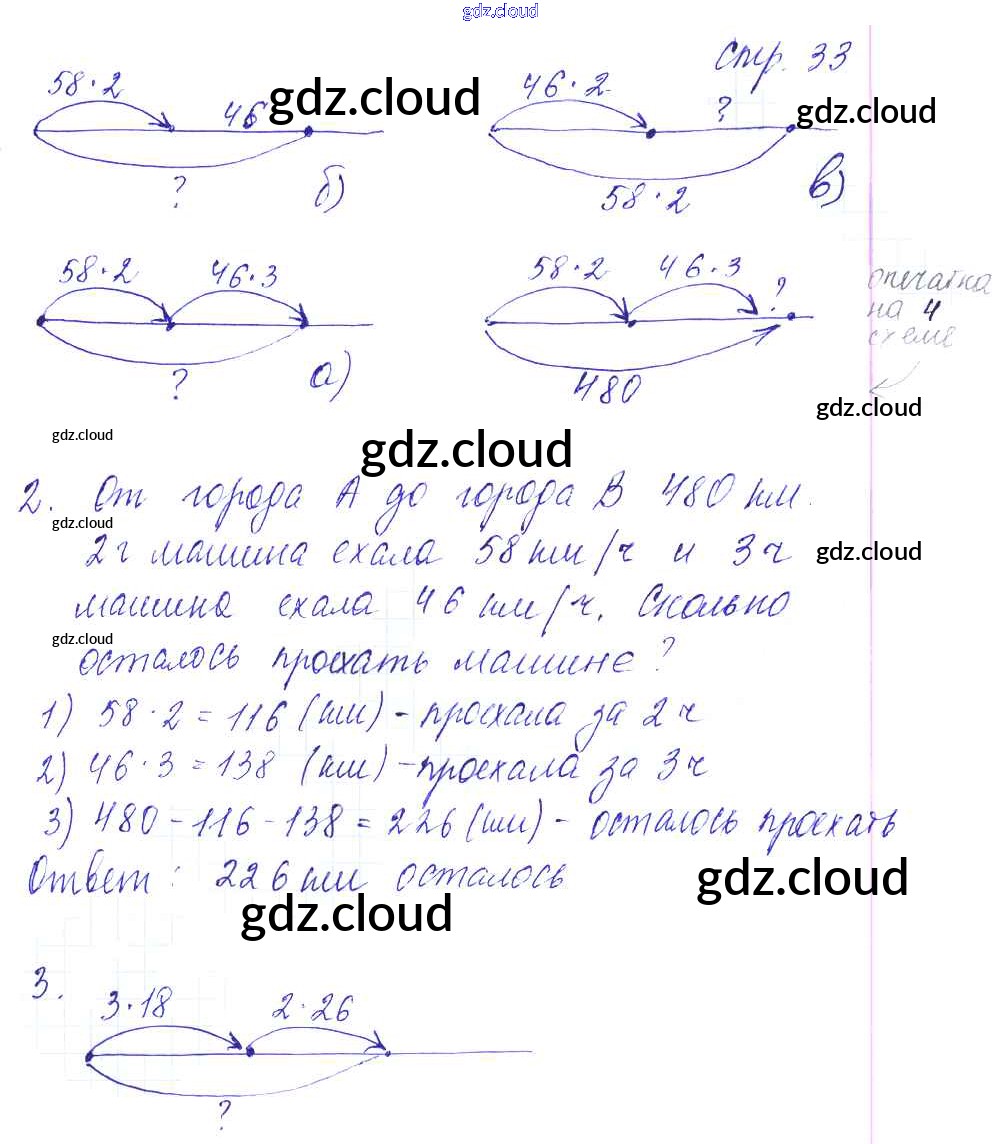 gdz.cloud
Стр. 33
58·2 46 gdz.cloud 46·2 ? gdz.cloud
? б) 58·2 в)
58·2 46·3 58·2 46·3 ?
опечатка
на 4
схеме
? а) 480
gdz.cloud
gdz.cloud gdz.cloud
2. От города А до города В 480 км.
gdz.cloud
2 ч машина ехала 58 км/ч и 3 ч gdz.cloud
машина ехала 46 км/ч. Сколько
gdz.cloud
осталось проехать машине?
1) 58·2=116 (км) - проехала за 2 ч
2) 46·3=138 (км) - проехала за 3 ч
3) 480-116-138=226 (км) - осталось проехать
Ответ: 226 км осталось gdz.cloud
gdz.cloud
3.
3·18 2·26
?